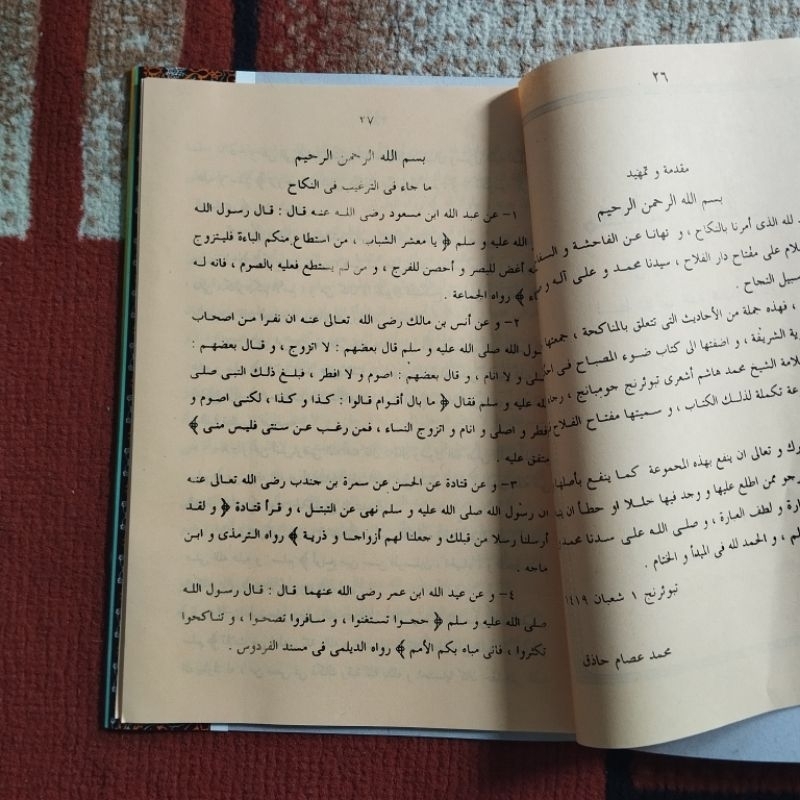 ٢٦
مقدمة و تمهيد
بسم الله الرحمن الرحيم
لله الذى أمرنا بالنكاح ، و نهانا عن الفاحشة و السفاح
لام على مفتاح دار الفلاح ، سيدنا محمد و على آله و
سبيل النجاح .
، فهذه جملة من الأحاديث التى تتعلق بالمناكحة ، جمعتها
رية الشريفة ، و اضفتها الى كتاب ضوء المصباح فى
لامة الشيخ محمد هاشم أشعرى تبوئرنج جومبانج ،
عة تكملة لذلك الكتاب ، و سميتها مفتاح الفلاح
رك و تعالى ان ينفع بهذه المجموعة كما ينفع بأصلها
رجو ممن اطلع عليها و وجد فيها خللا او خطأ ان
ارة و لطف العبارة ، و صلى الله على سدنا محمد
لم ، و الحمد لله فى المبدأ و الختام .
تبوئرنج ١ شعبان ١٤١٩
محمد عصام حاذق
٢٧
بسم الله الرحمن الرحيم
ما جاء فى الترغيب فى النكاح
١- عن عبد الله ابن مسعود رضى الله عنه قال : قال رسول الله
الله عليه و سلم ﴿ يا معشر الشباب ، من استطاع منكم الباءة فليتزوج
أغض للبصر و أحصن للفرج ، و من لم يستطع فعليه بالصوم ، فانه له
﴾ رواه الجماعة .
٢- و عن أنس بن مالك رضى الله تعالى عنه ان نفرا من اصحاب
الله صلى الله عليه و سلم قال بعضهم : لا اتزوج ، و قال بعضهم :
و لا انام ، و قال بعضهم : اصوم و لا افطر ، فبلغ ذلك النبى صلى
عليه و سلم فقال ﴿ ما بال أقوام قالوا : كذا و كذا ، لكنى اصوم و
افطر و اصلى و انام و اتزوج النساء ، فمن رغب عن سنتى فليس منى ﴾
متفق عليه .
٣- و عن قتادة عن الحسن عن سمرة بن جندب رضى الله تعالى عنه
ان رسول الله صلى الله عليه و سلم نهى عن التبتل ، و قرأ قتادة ﴿ و لقد
أرسلنا رسلا من قبلك و جعلنا لهم أزواجا و ذرية ﴾ رواه الترمذى و ابن
ماجه .
٤- و عن عبد الله ابن عمر رضى الله عنهما قال : قال رسول الله
صلى الله عليه و سلم ﴿ حجوا تستغنوا ، و سافروا تصحوا ، و تناكحوا
تكثروا ، فانى مباه بكم الأمم ﴾ رواه الديلمى فى مسند الفردوس .